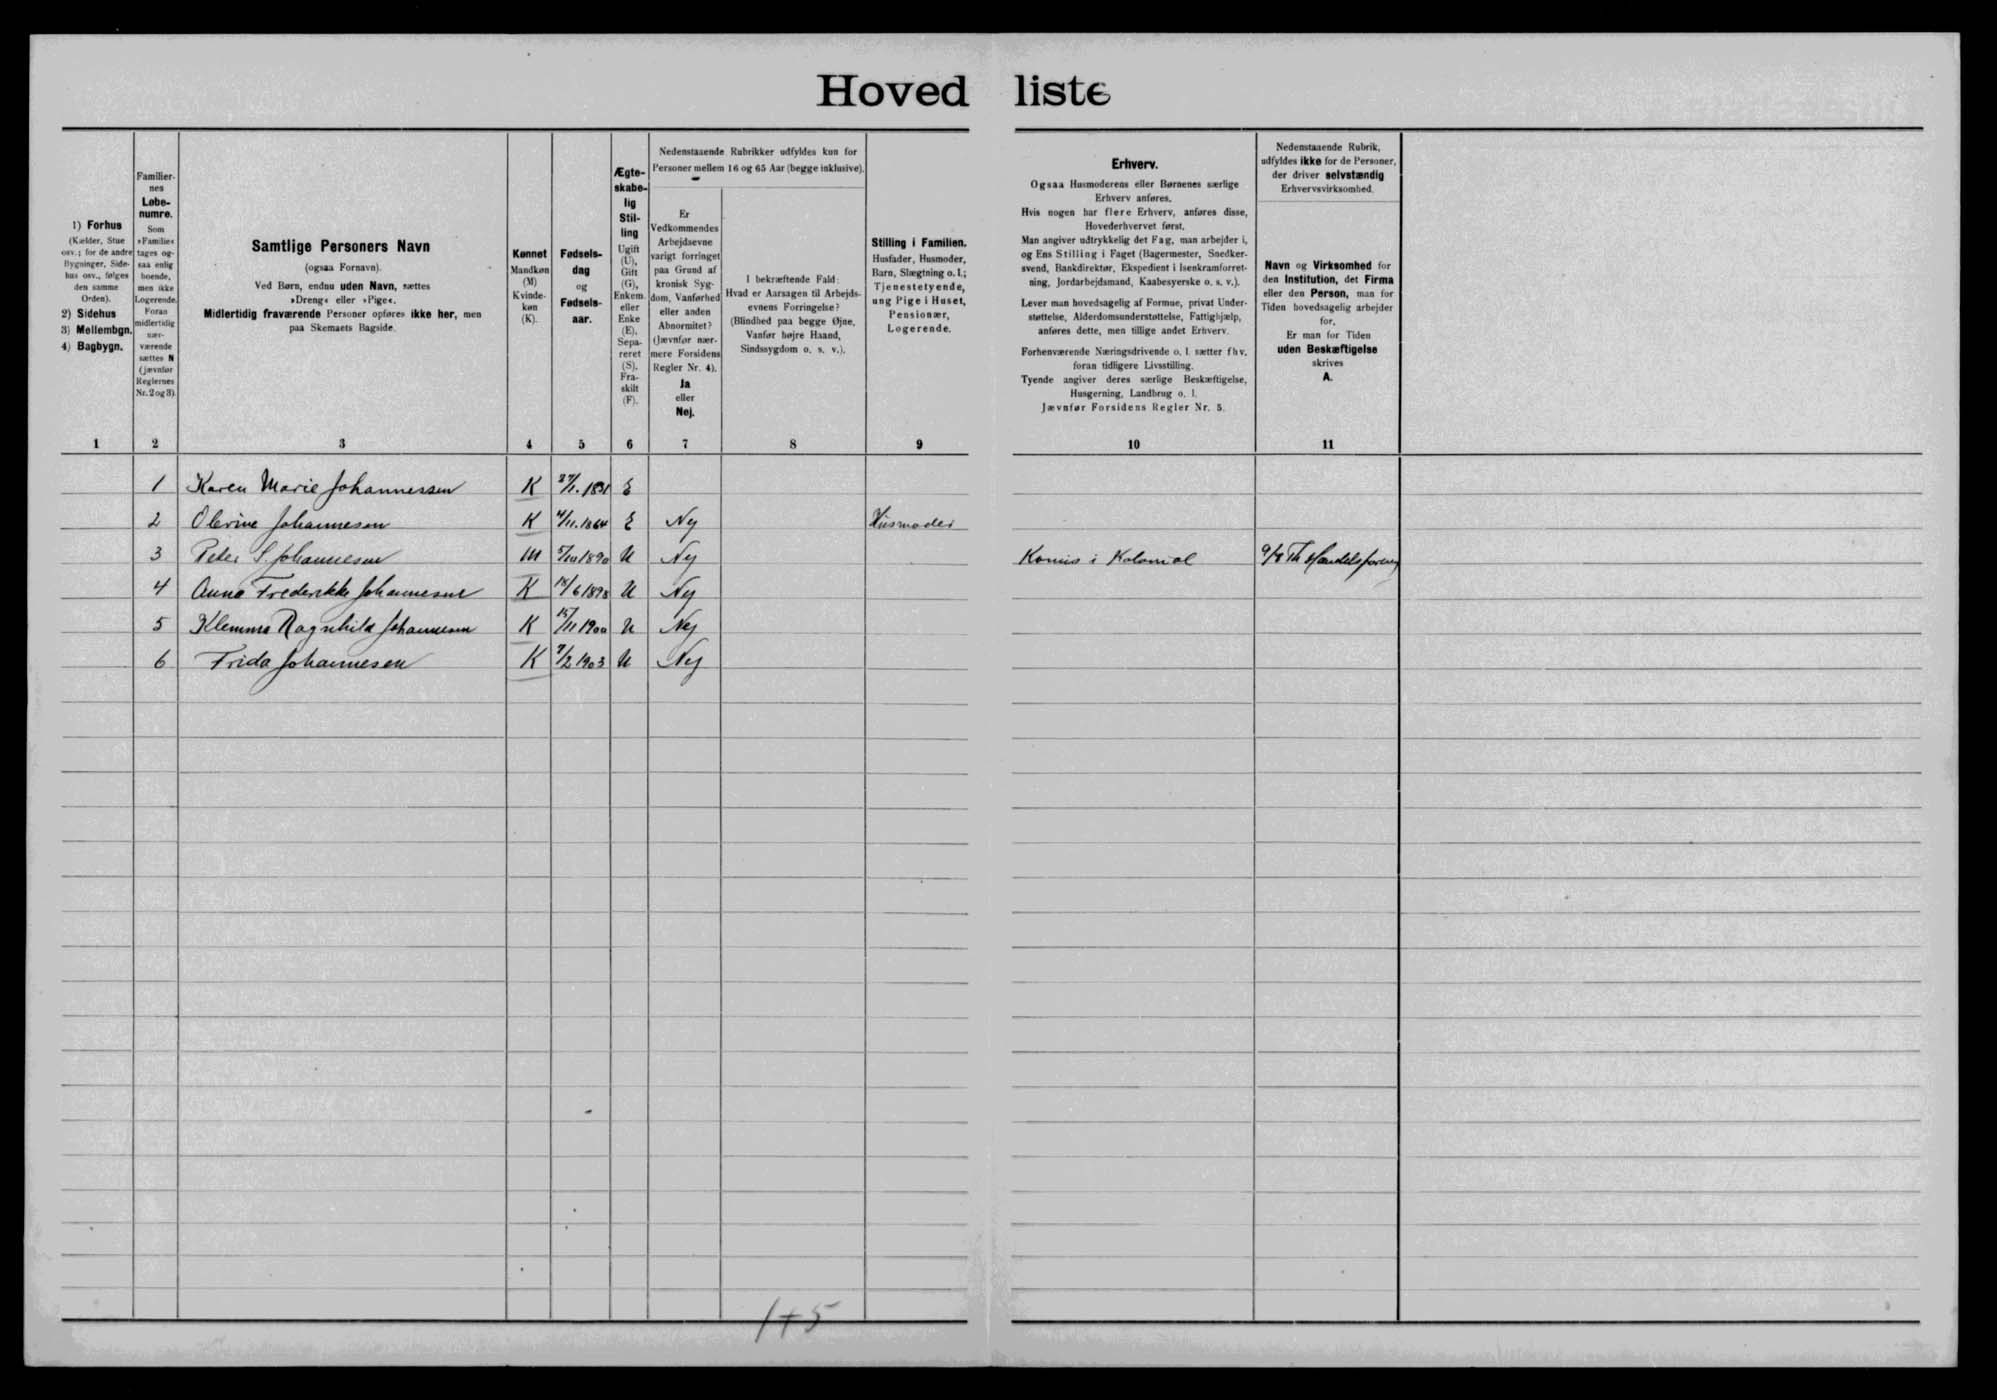 Hovedliste
1) Forhus
(Kælder, Stue
osv.; for de andre
Bygninger, Side-
hus osv., følges
den samme
Orden).
2) Sidehus
3) Mellembgn.
4) Bagbygn.
Familier-
nes
Løbe-
numre.
Som
»Familie«
tages og-
saa enlig
boende,
men ikke
Logerende.
Foran
midlertidig
nær-
værende
sættes N
(jævnfør
Reglernes
Nr. 2 og 3).
Samtlige Personers Navn
(ogsaa Fornavn).
Ved Børn, endnu uden Navn, sættes
»Dreng« eller »Pige«.
Midlertidig fraværende Personer opføres ikke her, men
paa Skemaets Bagside.
Kønnet
Mandkøn
(M)
Kvinde-
køn
(K).
Fødsels-
dag
og
Fødsels-
aar.
Ægte-
skabe-
lig
Stil-
ling
Ugift
(U),
Gift
(G),
Enkem.
eller
Enke
(E),
Sepa-
reret
(S),
Fra-
skilt
(F).
Nedenstaaende Rubrikker udfyldes kun for
Personer mellem 16 og 65 Aar (begge inklusive).
Er
Vedkommendes
Arbejdsevne
varigt forringet
paa Grund af
kronisk Syg-
dom, Vanførhed
eller anden
Abnormitet?
(Jævnfør nær-
mere Forsidens
Regler Nr. 4).
Ja
eller
Nej.
I bekræftende Fald:
Hvad er Aarsagen til Arbejds-
evnens Forringelse?
(Blindhed paa begge Øjne,
Vanfør højre Haand,
Sindssygdom o. s. v.).
Stilling i Familien.
Husfader, Husmoder,
Barn, Slægtning o. l.;
Tjenestetyende,
ung Pige i Huset,
Pensionær,
Logerende.
Erhverv.
Ogsaa Husmoderens eller Børnenes særlige
Erhverv anføres.
Hvis nogen har flere Erhverv, anføres disse,
Hovederhvervet først.
Man angiver udtrykkelig det Fag, man arbejder i,
og Ens Stilling i Faget (Bagermester, Snedker-
svend, Bankdirektør, Ekspedient i Isenkramforret-
ning, Jordarbejdsmand, Kaabesyerske o. s. v.).
Lever man hovedsagelig af Formue, privat Under-
støttelse, Alderdomsunderstøttelse, Fattighjælp,
anføres dette, men tillige andet Erhverv.
Forhenværende Næringsdrivende o. l. sætter fhv.
foran tidligere Livsstilling.
Tyende angiver deres særlige Beskæftigelse,
Husgerning, Landbrug o. l.
Jævnfør Forsidens Regler Nr. 5.
Nedenstaaende Rubrik,
udfyldes ikke for de Personer,
der driver selvstændig
Erhvervsvirksomhed.
Navn og Virksomhed for
den Institution, det Firma
eller den Person, man for
Tiden hovedsagelig arbejder
for.
Er man for Tiden
uden Beskæftigelse
skrives
A.
1 2 3 4 5 6 7 8 9 10 11
1 Karen Marie Johannessen K 27/1. 1831 E
2 Olerine Johannesen K 4/11. 1864 E Nej Husmoder
3 Peter S. Johannesen M 5/10 1890 U Nej Komis i Kolonial
4 Anna Frederikke Johannesen K 14/6 1898 U Nej
5 Klemma Ragnhild Johannesen K 15/11 1900 U Nej
6 Frida Johannesen K 7/2 1903 U Nej
1+5